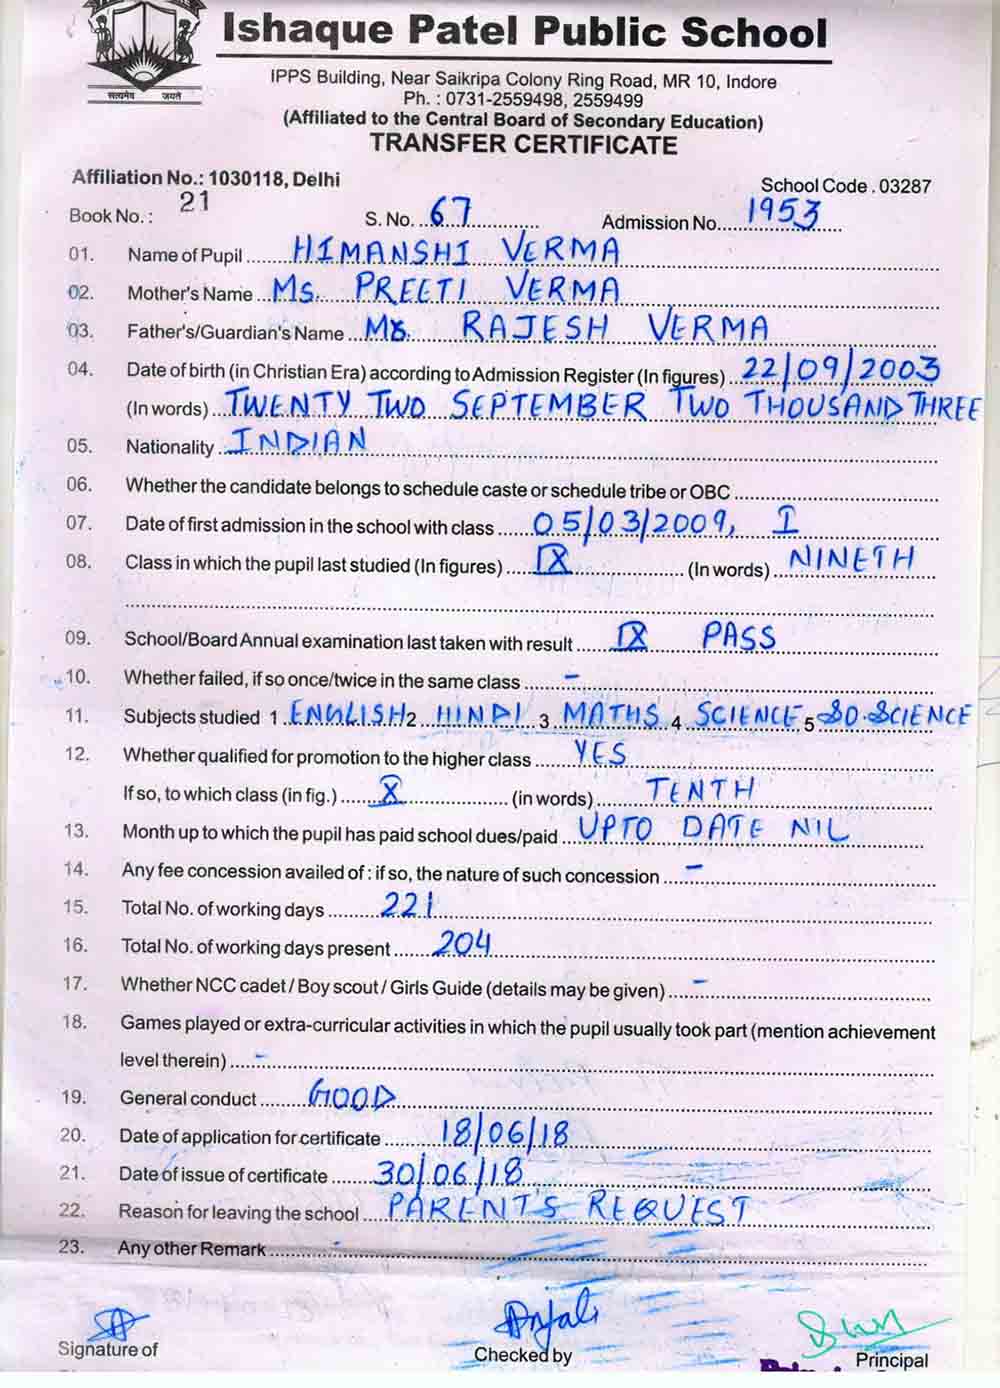 Ishaque Patel Public School
सत्यमेव जयते
IPPS Building, Near Saikripa Colony Ring Road, MR 10, Indore
Ph. : 0731-2559498, 2559499
(Affiliated to the Central Board of Secondary Education)
TRANSFER CERTIFICATE
Affiliation No.: 1030118, Delhi
School Code . 03287
Book No. : 21 S. No. 67 Admission No. 1953
01. Name of Pupil HIMANSHI VERMA
02. Mother's Name Ms. PREETI VERMA
03. Father's/Guardian's Name Mr. RAJESH VERMA
04. Date of birth (in Christian Era) according to Admission Register (In figures) 22/09/2003
(In words) TWENTY TWO SEPTEMBER TWO THOUSAND THREE
05. Nationality INDIAN
06. Whether the candidate belongs to schedule caste or schedule tribe or OBC
07. Date of first admission in the school with class 05/03/2009, I
08. Class in which the pupil last studied (In figures) IX (In words) NINETH
09. School/Board Annual examination last taken with result IX PASS
10. Whether failed, if so once/twice in the same class -
11. Subjects studied 1 ENGLISH 2 HINDI 3 MATHS 4 SCIENCE 5 SO.SCIENCE
12. Whether qualified for promotion to the higher class YES
If so, to which class (in fig.) X (in words) TENTH
13. Month up to which the pupil has paid school dues/paid UPTO DATE NIL
14. Any fee concession availed of : if so, the nature of such concession -
15. Total No. of working days 221
16. Total No. of working days present 204
17. Whether NCC cadet / Boy scout / Girls Guide (details may be given) -
18. Games played or extra-curricular activities in which the pupil usually took part (mention achievement
level therein) -
19. General conduct GOOD
20. Date of application for certificate 18/06/18
21. Date of issue of certificate 30/06/18
22. Reason for leaving the school PARENT'S REQUEST
23. Any other Remark -
Anjali
Signature of Checked by Principal